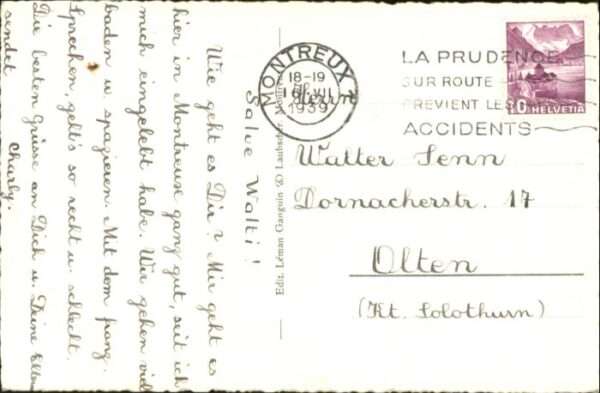 Salve Walti!
Wie geht es Dir? Mir geht es
hier in Montreux ganz gut, seit ich
mich eingelebt habe. Wir gehen viel
baden u. spazieren. Mit dem franz.
Sprechen, geht's so recht u. schlecht.
Die besten Grüsse an Dich u. Deine Eltern
sendet
Charly.
Edit. Léman Ganguin & Laubscher, Montreux
MONTREUX 1
18-19
VII
1939
LA PRUDENCE
SUR ROUTE
PREVIENT LES
ACCIDENTS
10 HELVETIA
Herrn
Walter Senn
Dornacherstr. 17
Olten
(Kt. Solothurn)